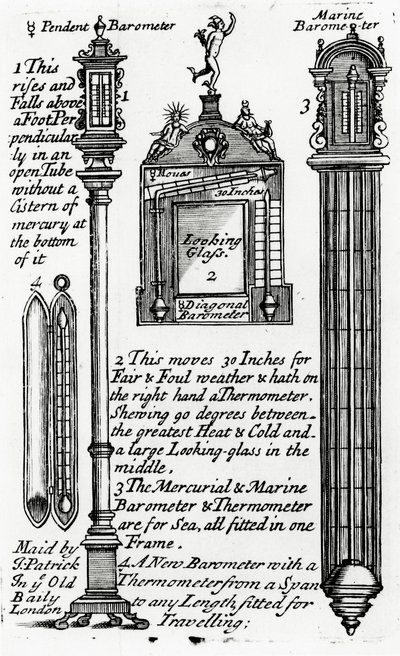 ☿ Pendent Barometer
Marine
Barome-ter
1 This
rises and
Falls above
a Foot Per
pendicular
ly in an
open Tube
without a
Cistern of
mercury at
the bottom
of it
1
3
☿ Moves
30 Inches
Looking
Glass.
2
☿ Diagonal
Barometer
4
2 This moves 30 Inches for
Fair & Foul weather & hath on
the right hand a Thermometer,
Shewing 90 degrees between
the greatest Heat & Cold and
a large Looking-glass in the
middle,
3 The Mercurial & Marine
Barometer & Thermometer
are for Sea, all fitted in one
Frame.
4. A New Barometer with a
Thermometer from a Span
to any Length, fitted for
Travelling;
Maid by
J: Patrick
In yͤ Old
Baily
London